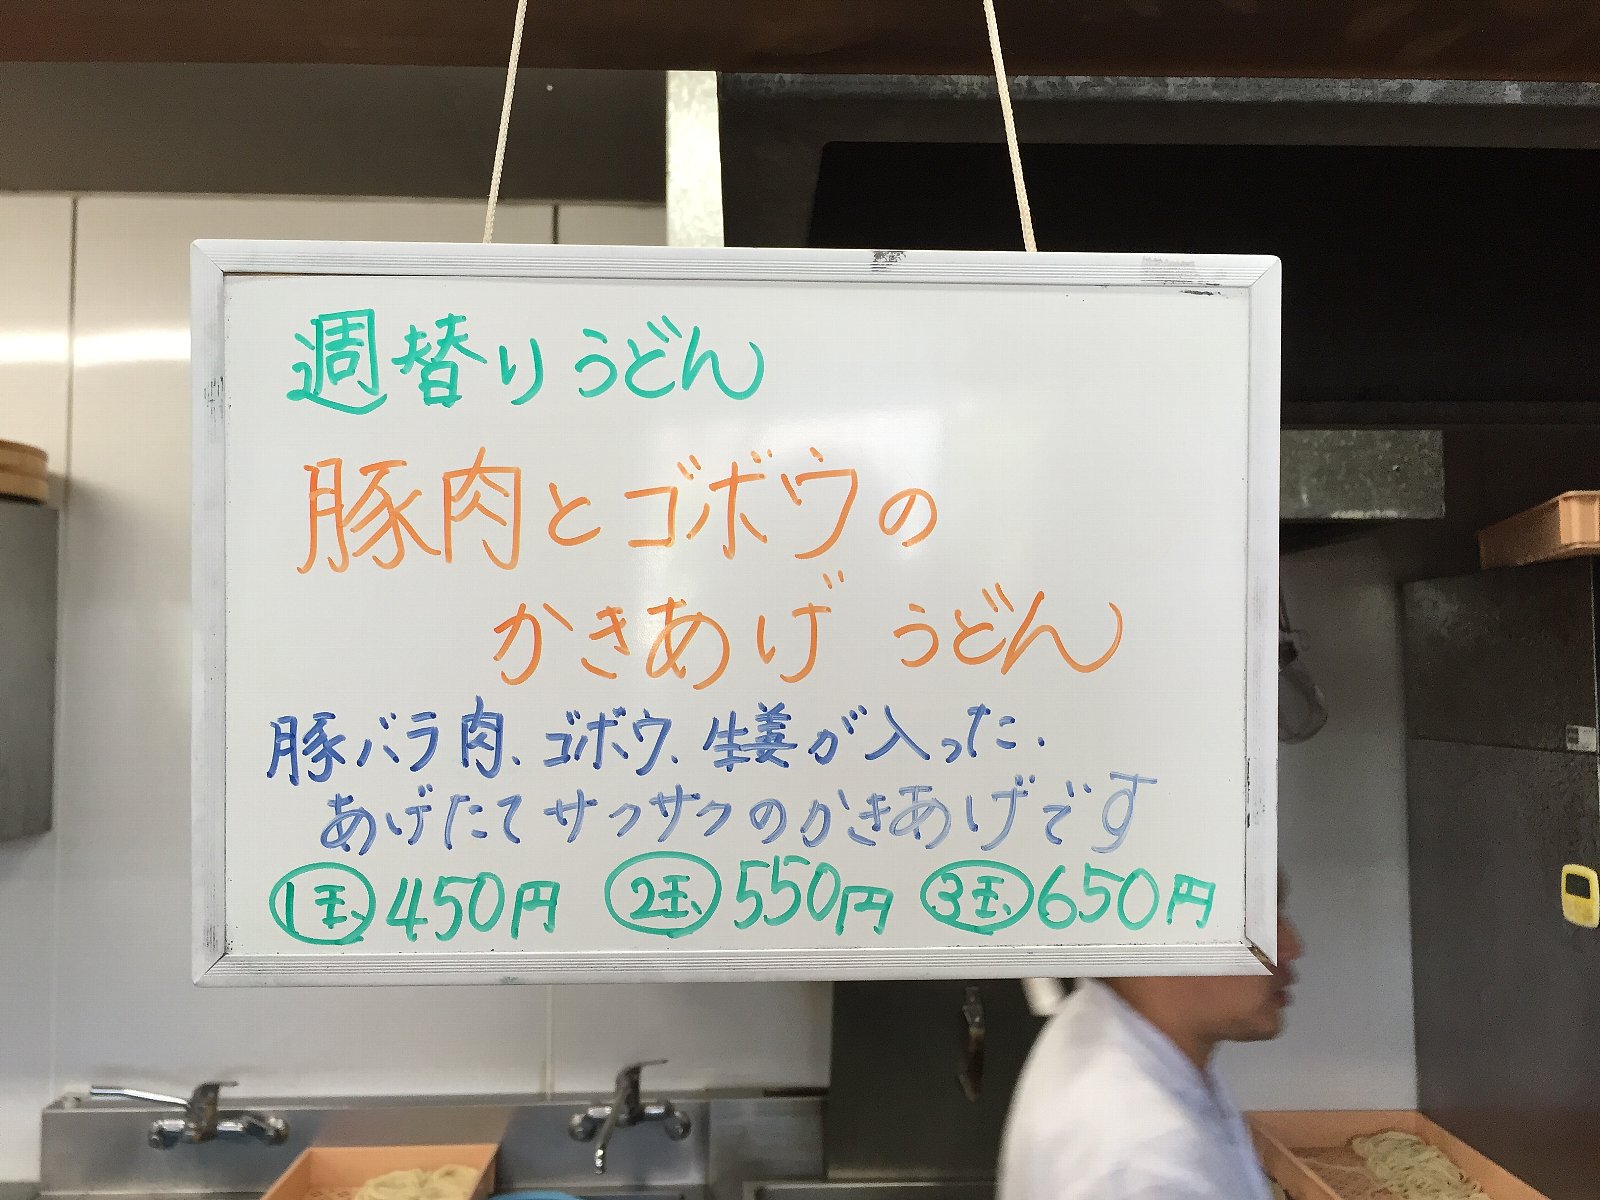 週替りうどん
豚肉とゴボウの
かきあげ うどん
豚バラ肉、ゴボウ、生姜が入った、
あげたてサクサクのかきあげです
1玉 450円 2玉 550円 3玉 650円